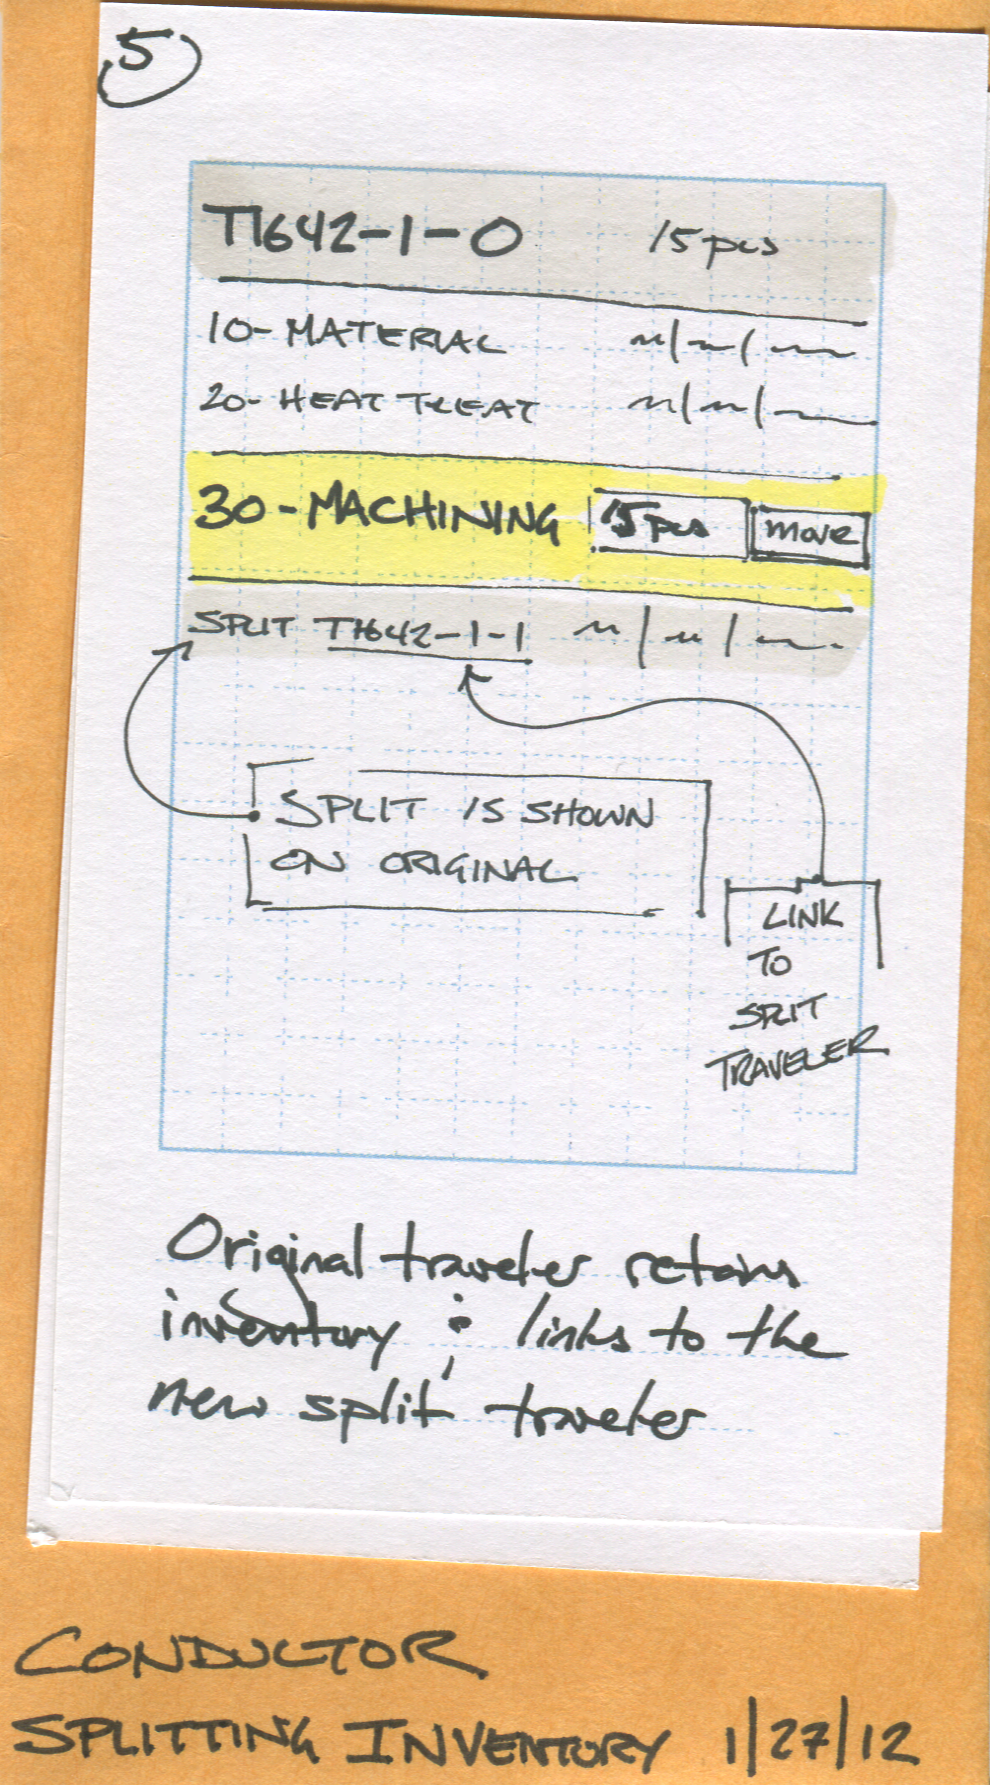 5
T1642-1-0 15 pcs
10-MATERIAL
20-HEAT TREAT
30-MACHINING 15 pcs move
SPLIT T1642-1-1
SPLIT IS SHOWN
ON ORIGINAL
LINK
TO
SPLIT
TRAVELER
Original traveler retains
inventory & links to the
new split traveler
CONDUCTOR
SPLITTING INVENTORY 1/27/12